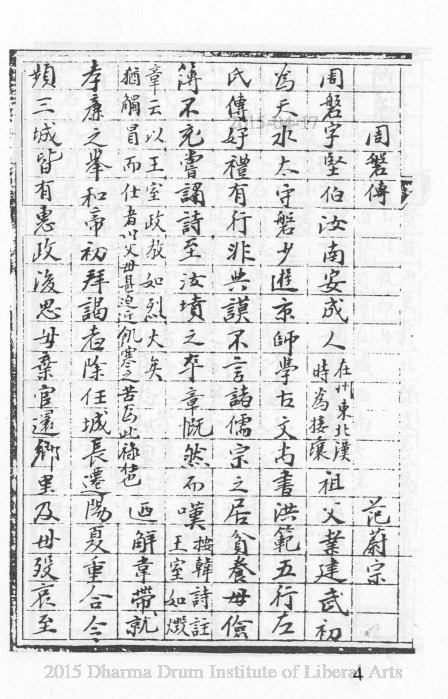 周磐傳　范蔚宗
周磐字堅伯汝南安成人在州東北漢
時為接壤祖父業建武初
為天水太守磐少遊京師學古文尚書洪範五行左
氏傳好禮有行非典謨不言諸儒宗之居貧養母儉
薄不充嘗誦詩至汝墳之卒章慨然而嘆按韓詩註
王室如燬
章云以王室政教如烈火矣
猶觸冒而仕者以父母甚迫近飢寒之苦為此祿也迺解韋帶就
孝廉之舉和帝初拜謁者除任城長遷陽夏重合令
頻三城皆有惠政後思母棄官還鄉里及母歿哀至
4
2015 Dharma Drum Institute of Liberal Arts